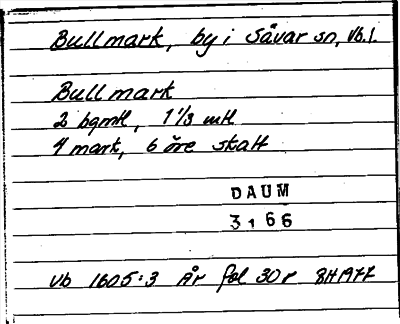 Bullmark, by i Sävar sn, Vb.l.
Bullmark
2 bgmtl, 1 1/3 mtl
4 mark, 6 öre skatt
DAUM
3166
Vb 1605:3 År fol 30r BH1977